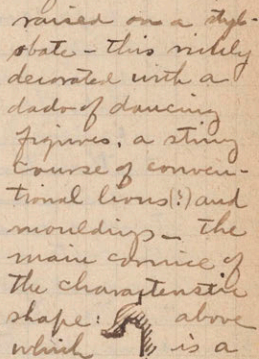 raised on a stylo-
bate - this richly
decorated with a
dado of dancing
figures, a string
course of conven-
tional lions(?) and
mouldings - the
main cornice of
the characteristic
shape: above
which is a